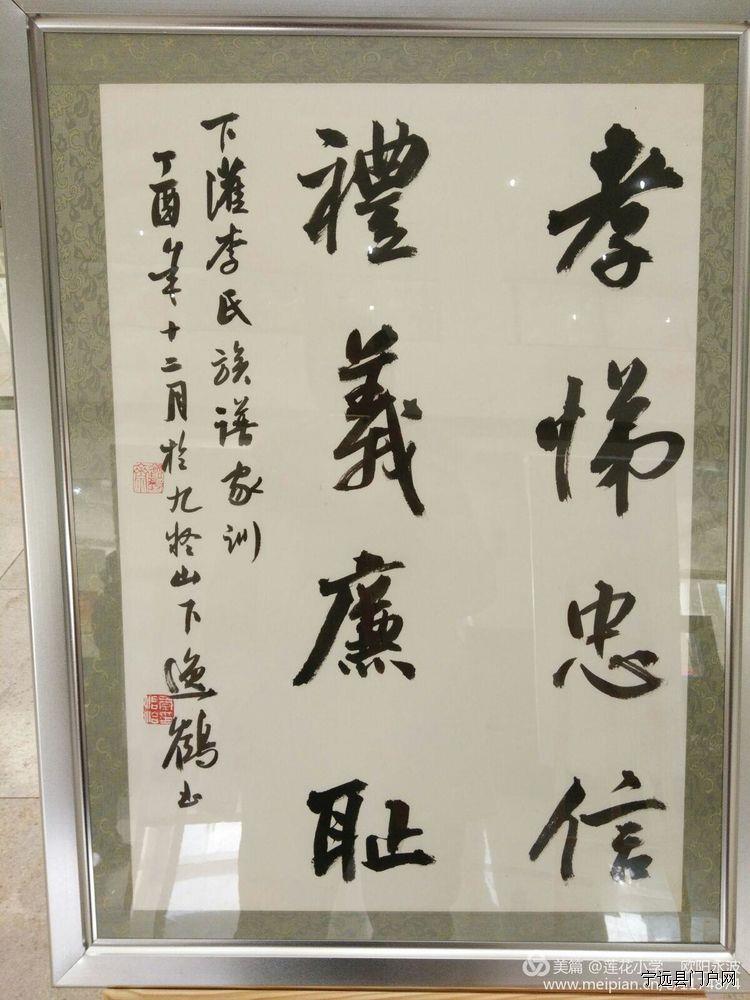 孝悌忠信
禮義廉恥
下灌李氏族譜家訓
丁酉年十二月於九嶷山下逸鶴书
美篇 @莲花小学
宁远县门户网
www.meipian.cn